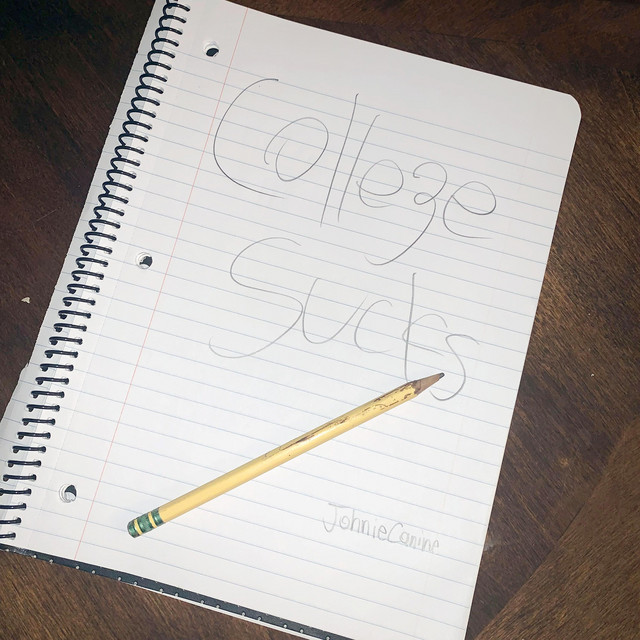 College
Sucks
JohnieCanine